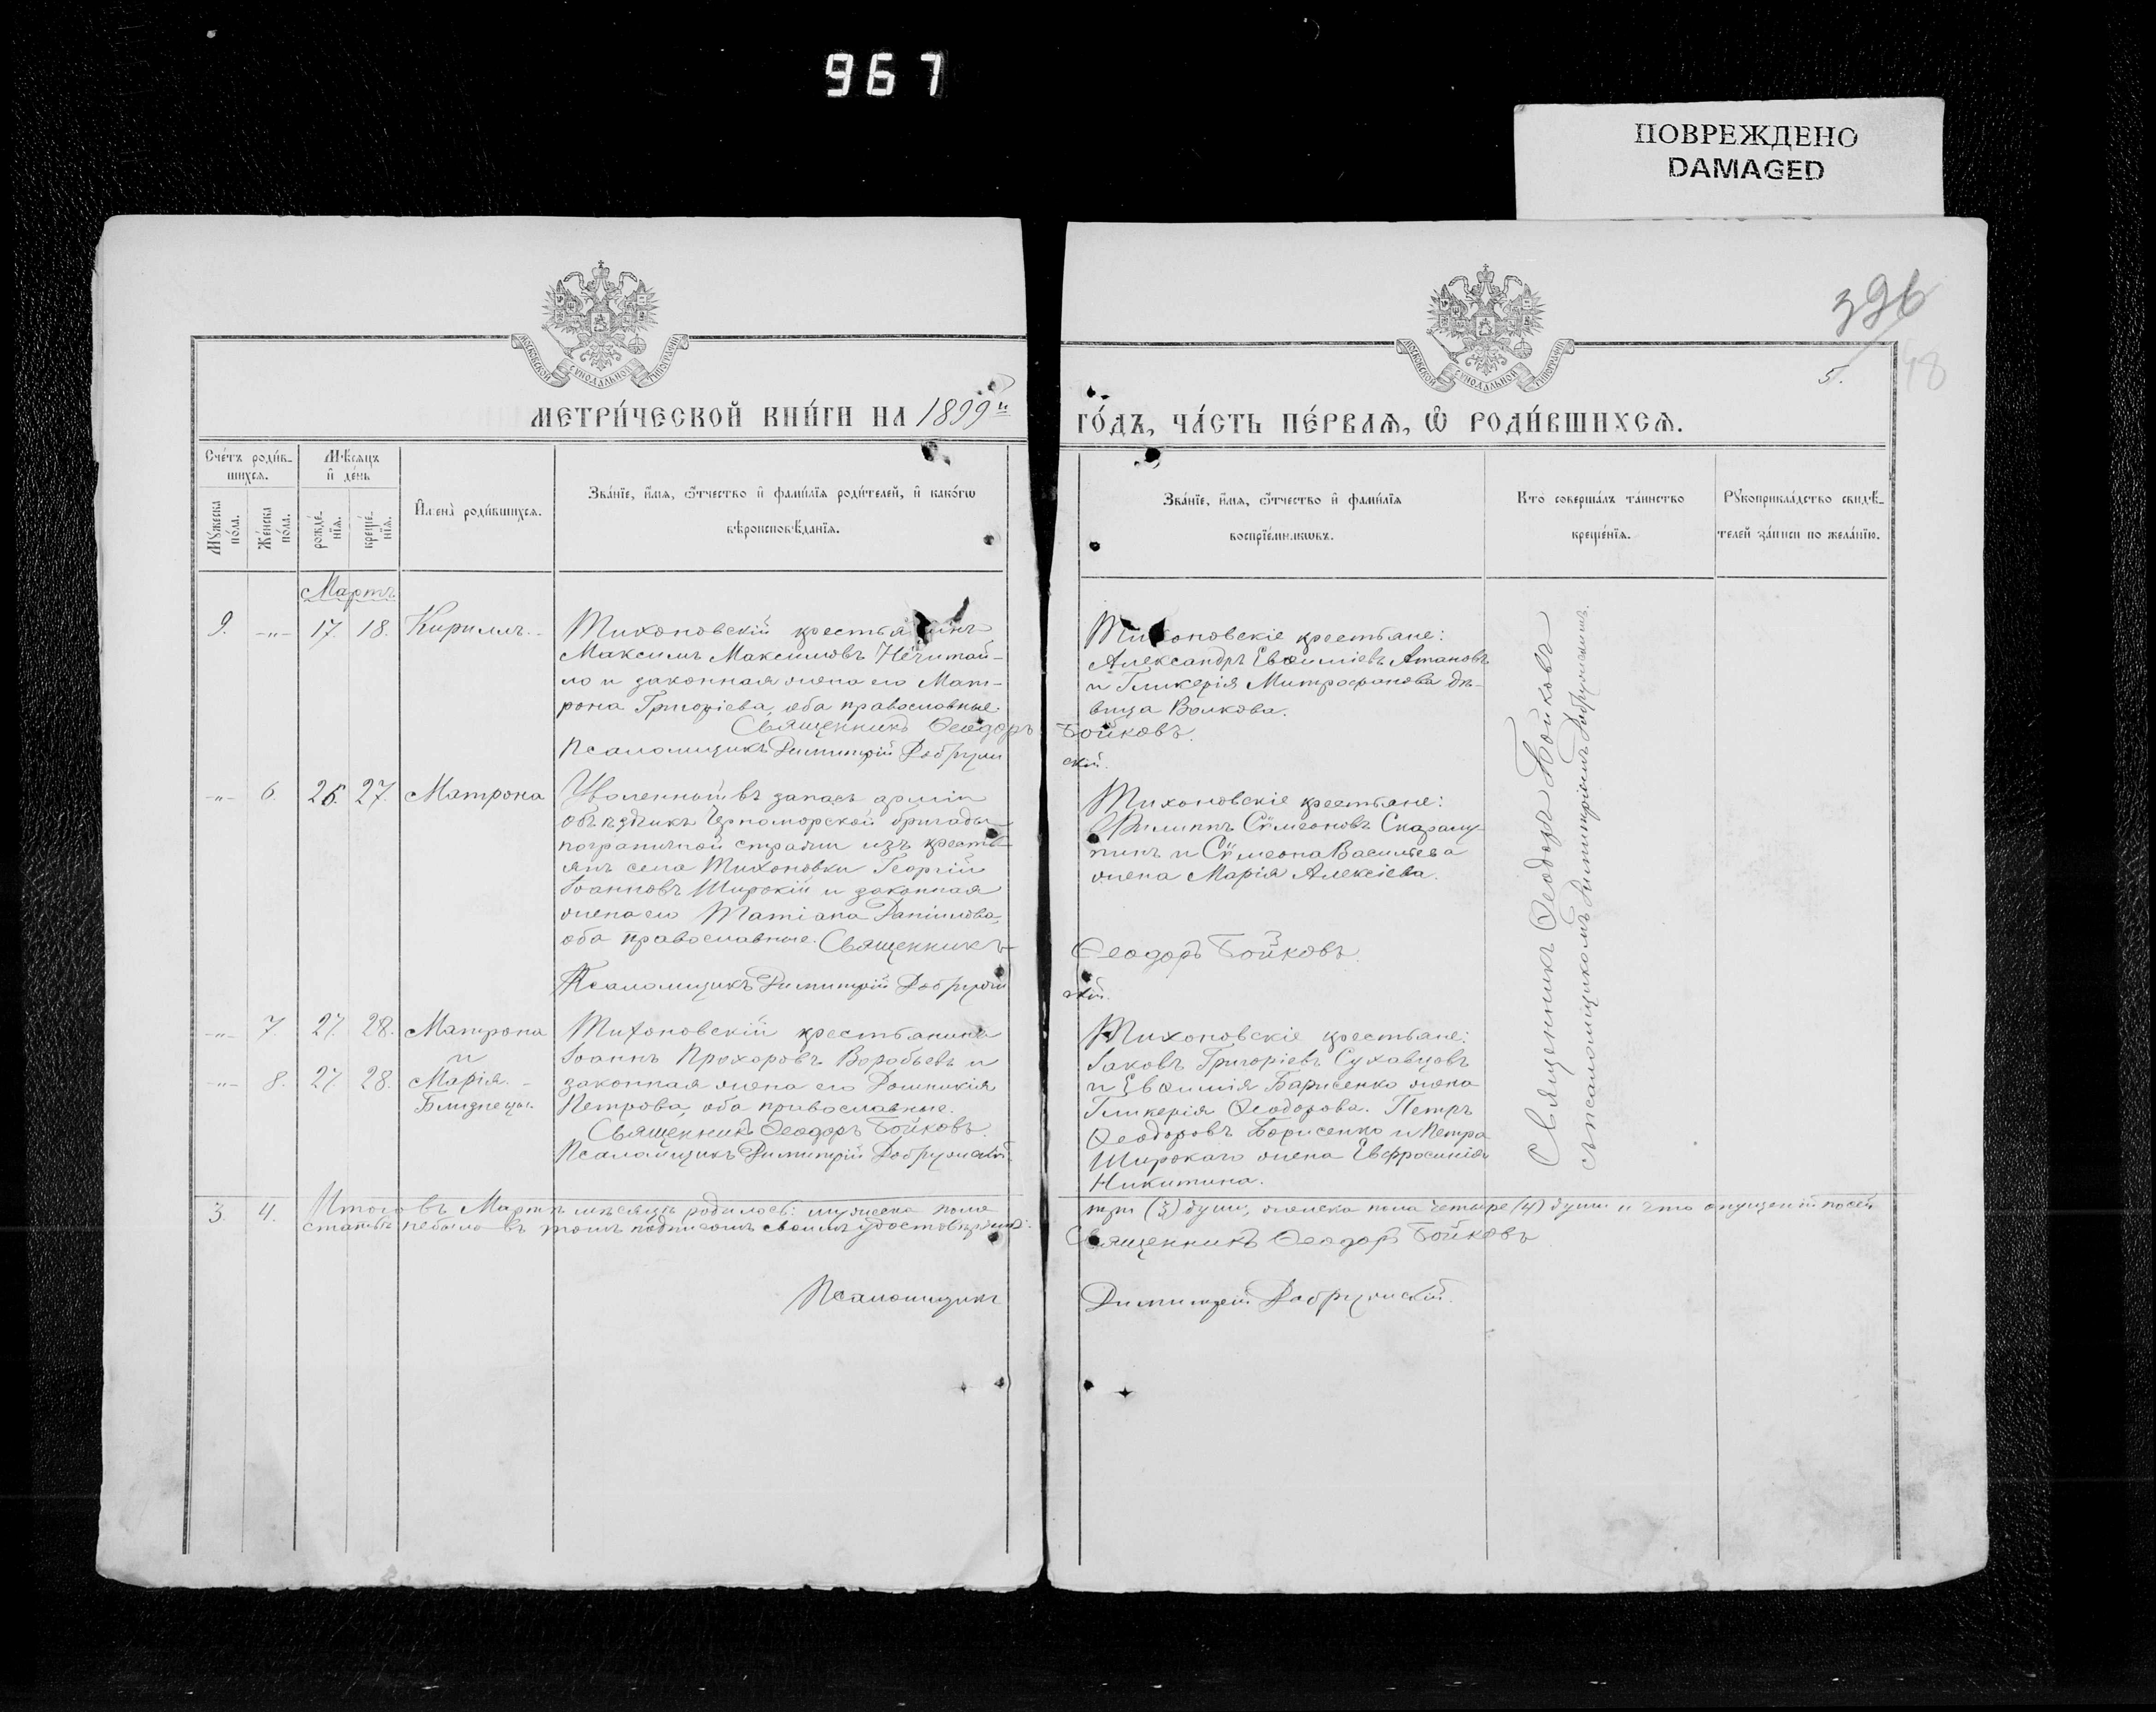 967
ПОВРЕЖДЕНО
DAMAGED
396
5.
48
МОСКОВСКОЙ СѴНОДАЛЬНОЙ ТИПОГРАФІИ
МОСКОВСКОЙ СѴНОДАЛЬНОЙ ТИПОГРАФІИ
МЕТРИ́ЧЕСКОЙ КНИ́ГИ НА 1899й
ГО́ДЪ, ЧА́СТЬ ПЕ́РВАѦ, Ѽ РОДИ́ВШИХСѦ.
Сче́тъ роди́в-
шихсѧ.
Мѣ́сяцъ
и҆ де́нь
Мꙋ́жеска по́ла.
Же́нска по́ла.
рожде́-нїѧ.
креще́-нїѧ.
И҆мена̀ роди́вшихсѧ.
Зва́нїе, и҆́мѧ, ѻ҆́тчество и҆ фами́лїѧ роди́телей, и҆ како́гѡ
вѣроисповѣ́данїѧ.
Зва́нїе, и҆́мѧ, ѻ҆́тчество и҆ фами́лїѧ
воспрїе́мникѡвъ.
Кто̀ соверша́лъ та́инство
креще́нїѧ.
Рꙋкоприкла́дство свидѣ́-
телей за́писи по жела́нїю.
Мартъ
9. -"- 17. 18. Кириллъ.
Тихоновскій крестьянинъ
Максимъ Максимовъ Нечитай-
ло и законная жена его Мат-
рона Григоріева, оба православные.
Священникъ Ѳеодоръ Бойковъ.
Псаломщикъ Димитрій Добружскій.
Тихоновскіе крестьяне:
Александръ Евѳиміевъ Атановъ
и Гликерія Митрофанова дѣ-
вица Волкова.
-"- 6. 26. 27. Матрона
Уволенный въ запасъ арміи
объѣздчикъ Черноморской бригады
пограничной стражи изъ кресть-
янъ села Тихоновки Георгій
Іоанновъ Широкій и законная
жена его Татіана Даніилова,
оба православные. Священникъ
Ѳеодоръ Бойковъ.
Псаломщикъ Димитрій Добружскій.
Тихоновскіе крестьяне:
Филиппъ Сѵмеоновъ Скарлу-
пинъ и Сѵмеона Васильева
жена Марія Алексіева.
-"- 7. 27. 28. Матрона
и
-"- 8. 27 28. Марія. -
Близнецы.
Тихоновскій крестьянинъ
Іоаннъ Прохоровъ Воробьевъ и
законная жена его Домникія
Петрова, оба православные.
Священникъ Ѳеодоръ Бойковъ.
Псаломщикъ Димитрій Добружскій.
Тихоновскіе крестьяне:
Іаковъ Григоріевъ Сухавцовъ
и Евѳимія Барисенко жена
Гликерія Ѳеодорова. Петръ
Ѳеодоровъ Борисенко и Петра
Широкаго жена Евфросинія
Никитина.
Священникъ Ѳеодоръ Бойковъ
съ псаломщикомъ Димитріемъ Добружскимъ.
3. 4. Итого въ Мартѣ мѣсяцѣ родилось: мужеска пола
три (3) души, женска пола четыре (4) души и что опущеній посей
статьѣ небыло въ томъ подписомъ своимъ удостовѣряемъ:
Священникъ Ѳеодоръ Бойковъ
Псаломщикъ
Димитрій Добружскій.